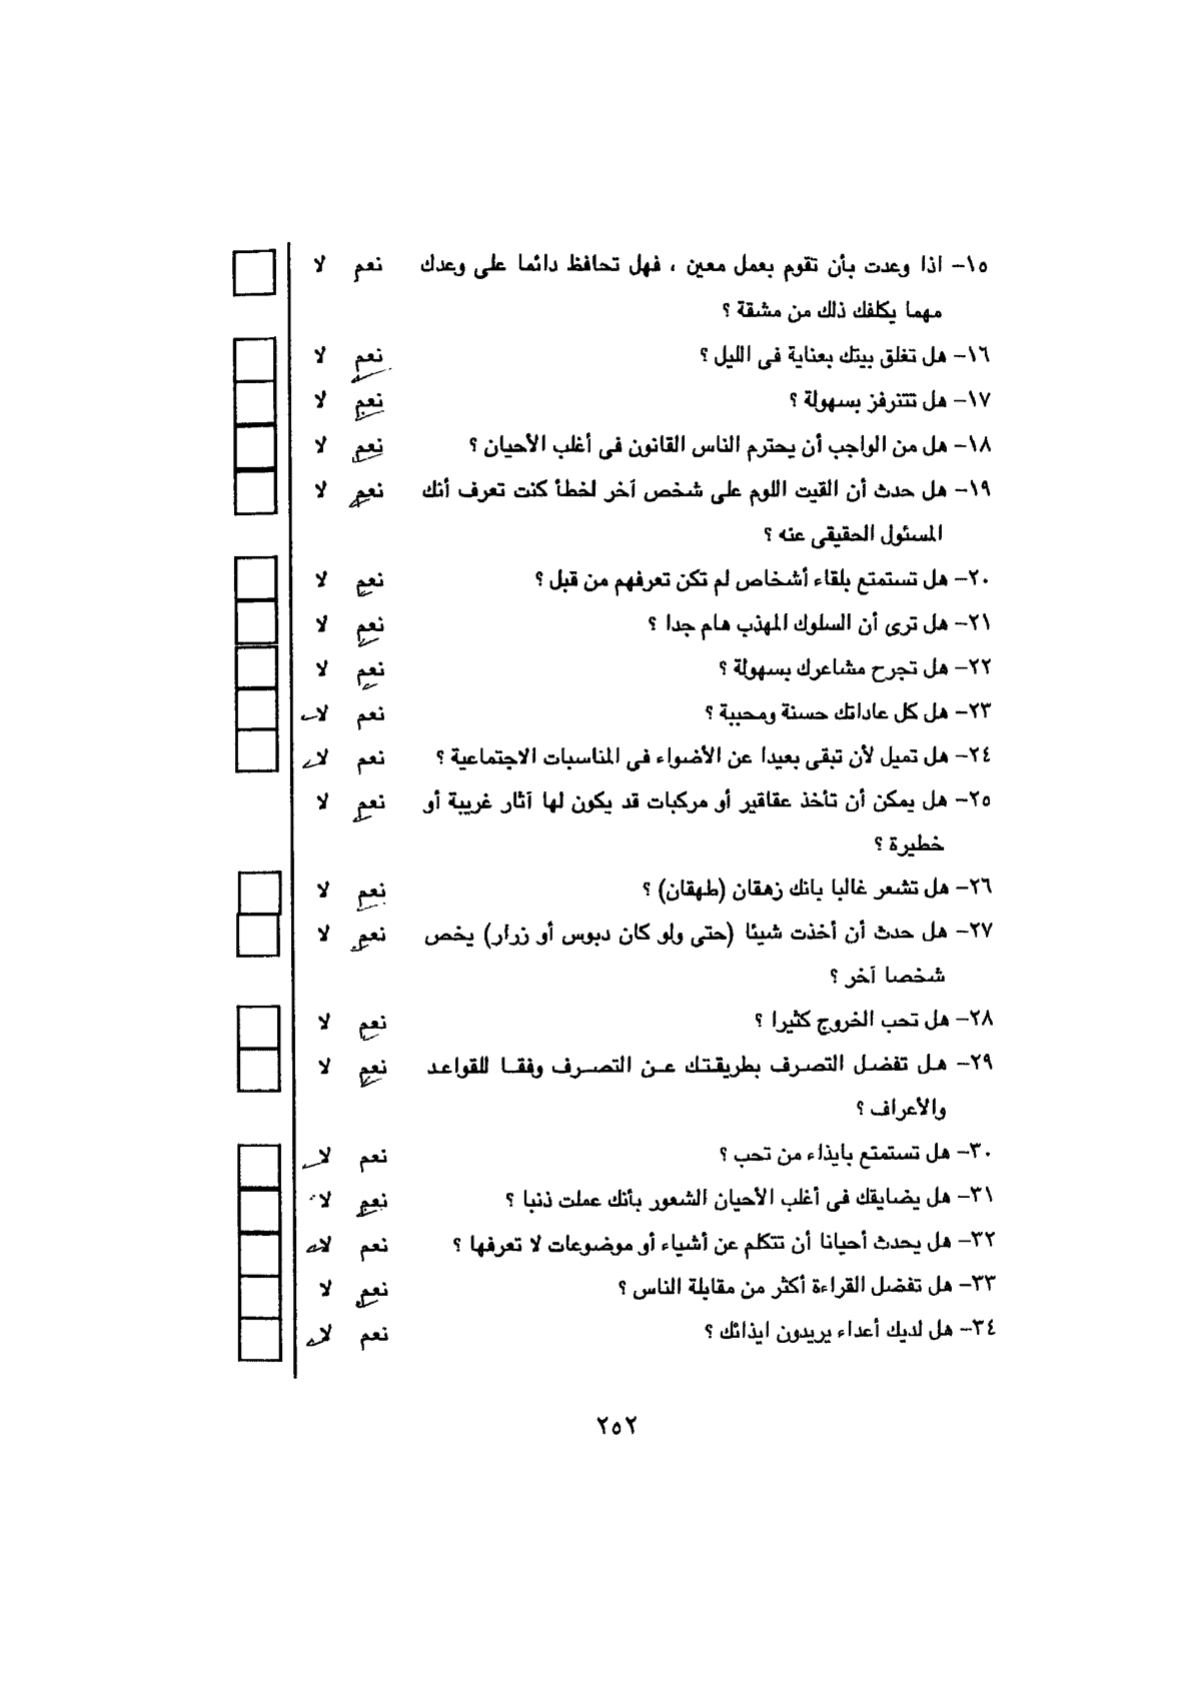 ١٥- اذا وعدت بأن تقوم بعمل معين ، فهل تحافظ دائما على وعدك نعم لا
مهما يكلفك ذلك من مشقة ؟
١٦- هل تغلق بيتك بعناية فى الليل ؟ نعم لا
١٧- هل تتنرفز بسهولة ؟ نعم لا
١٨- هل من الواجب أن يحترم الناس القانون فى أغلب الأحيان ؟ نعم لا
١٩- هل حدث أن القيت اللوم على شخص آخر لخطأ كنت تعرف أنك نعم لا
المسئول الحقيقى عنه ؟
٢٠- هل تستمتع بلقاء أشخاص لم تكن تعرفهم من قبل ؟ نعم لا
٢١- هل ترى أن السلوك المهذب هام جدا ؟ نعم لا
٢٢- هل تجرح مشاعرك بسهولة ؟ نعم لا
٢٣- هل كل عاداتك حسنة ومحببة ؟ نعم لا
٢٤- هل تميل لأن تبقى بعيدا عن الأضواء فى المناسبات الاجتماعية ؟ نعم لا
٢٥- هل يمكن أن تأخذ عقاقير أو مركبات قد يكون لها آثار غريبة أو نعم لا
خطيرة ؟
٢٦- هل تشعر غالبا بانك زهقان (طهقان) ؟ نعم لا
٢٧- هل حدث أن أخذت شيئا (حتى ولو كان دبوس أو زرار) يخص نعم لا
شخصا آخر ؟
٢٨- هل تحب الخروج كثيرا ؟ نعم لا
٢٩- هل تفضل التصرف بطريقتك عن التصرف وفقا للقواعد نعم لا
والأعراف ؟
٣٠- هل تستمتع بايذاء من تحب ؟ نعم لا
٣١- هل يضايقك فى أغلب الأحيان الشعور بأنك عملت ذنبا ؟ نعم لا
٣٢- هل يحدث أحيانا أن تتكلم عن أشياء أو موضوعات لا تعرفها ؟ نعم لا
٣٣- هل تفضل القراءة أكثر من مقابلة الناس ؟ نعم لا
٣٤- هل لديك أعداء يريدون ايذائك ؟ نعم لا
٢٥٢